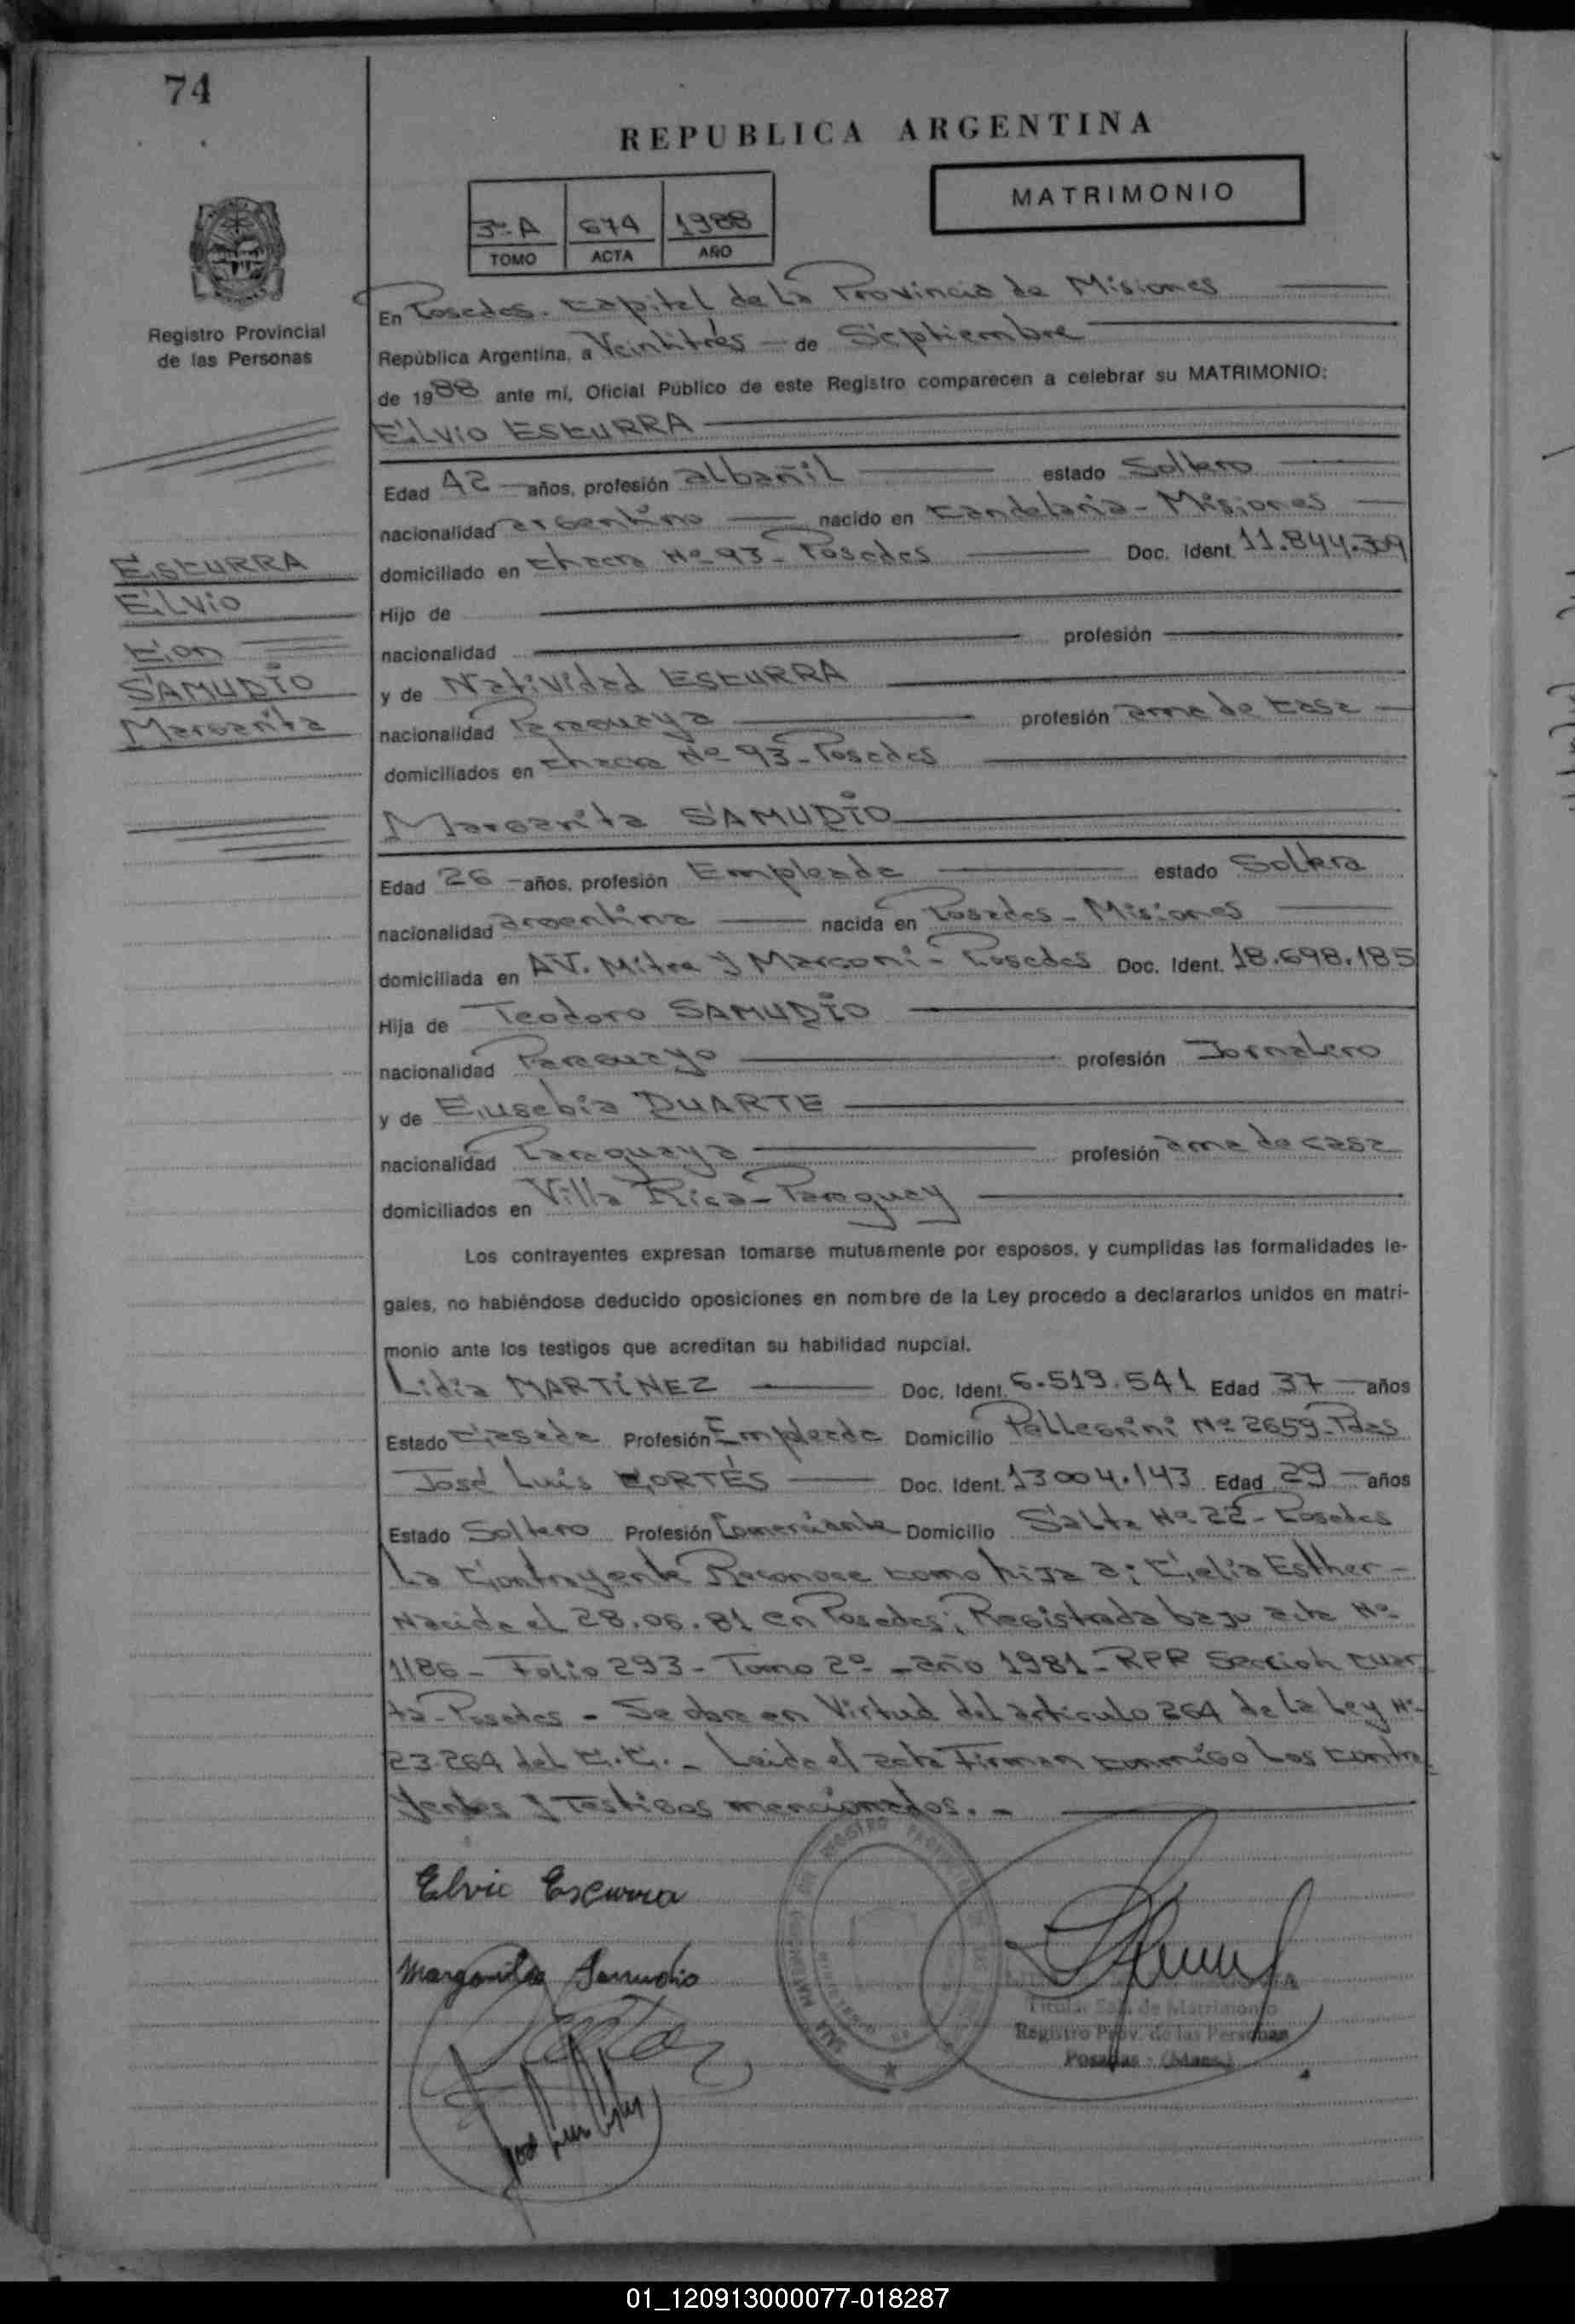 74
REPUBLICA ARGENTINA
MATRIMONIO
3º A 674 1988
TOMO ACTA AÑO
Registro Provincial
de las Personas
En Posadas. Capital de la Provincia de Misiones
República Argentina, a Veintitrés de Septiembre
de 1988 ante mí, Oficial Público de este Registro comparecen a celebrar su MATRIMONIO:
Elvio ESCURRA
Edad 42 años, profesión albañil estado Soltero
nacionalidad argentino nacido en Candelaria - Misiones
domiciliado en Chacra Nº 93 - Posadas Doc. Ident. 11.844.309
Hijo de
nacionalidad profesión
y de Natividad ESCURRA
nacionalidad Paraguaya profesión ama de casa
domiciliados en Chacra Nº 93 - Posadas
ESCURRA
Elvio
Con
SAMUDIO
Margarita
Margarita SAMUDIO
Edad 26 años, profesión Empleada estado Soltera
nacionalidad argentina nacida en Posadas - Misiones
domiciliada en AV. Mitre y Marconi - Posadas Doc. Ident. 18.698.185
Hija de Teodoro SAMUDIO
nacionalidad Paraguayo profesión Jornalero
y de Eusebia DUARTE
nacionalidad Paraguaya profesión ama de casa
domiciliados en Villa Rica - Paraguay
Los contrayentes expresan tomarse mutuamente por esposos, y cumplidas las formalidades le-
gales, no habiéndose deducido oposiciones en nombre de la Ley procedo a declararlos unidos en matri-
monio ante los testigos que acreditan su habilidad nupcial.
Lidia MARTÍNEZ Doc. Ident. 6.519.541 Edad 37 años
Estado Casada Profesión Empleada Domicilio Pellegrini Nº 2659 - Pdas
José Luis CORTÉS Doc. Ident. 13004.143 Edad 29 años
Estado Soltero Profesión Comerciante Domicilio Salta Nº 22 - Posadas
La Contrayente Reconoce como hija a: Celia Esther -
Nacida el 28.06.81 en Posadas; Registrada bajo acta Nº
1186 - Folio 293 - Tomo 2º - año 1981 - RPP Sección cuar
ta - Posadas - Se obra en Virtud del artículo 264 de la Ley Nº
23.264 del C.C. - Leida el acta Firman conmigo Los contra
yentes y Testigos mencionados. -
Elvio Escurra
Margarita Samudio
Titular Sala de Matrimonio
Registro Prov. de las Personas
Posadas - (Mnes.)
01_120913000077-018287